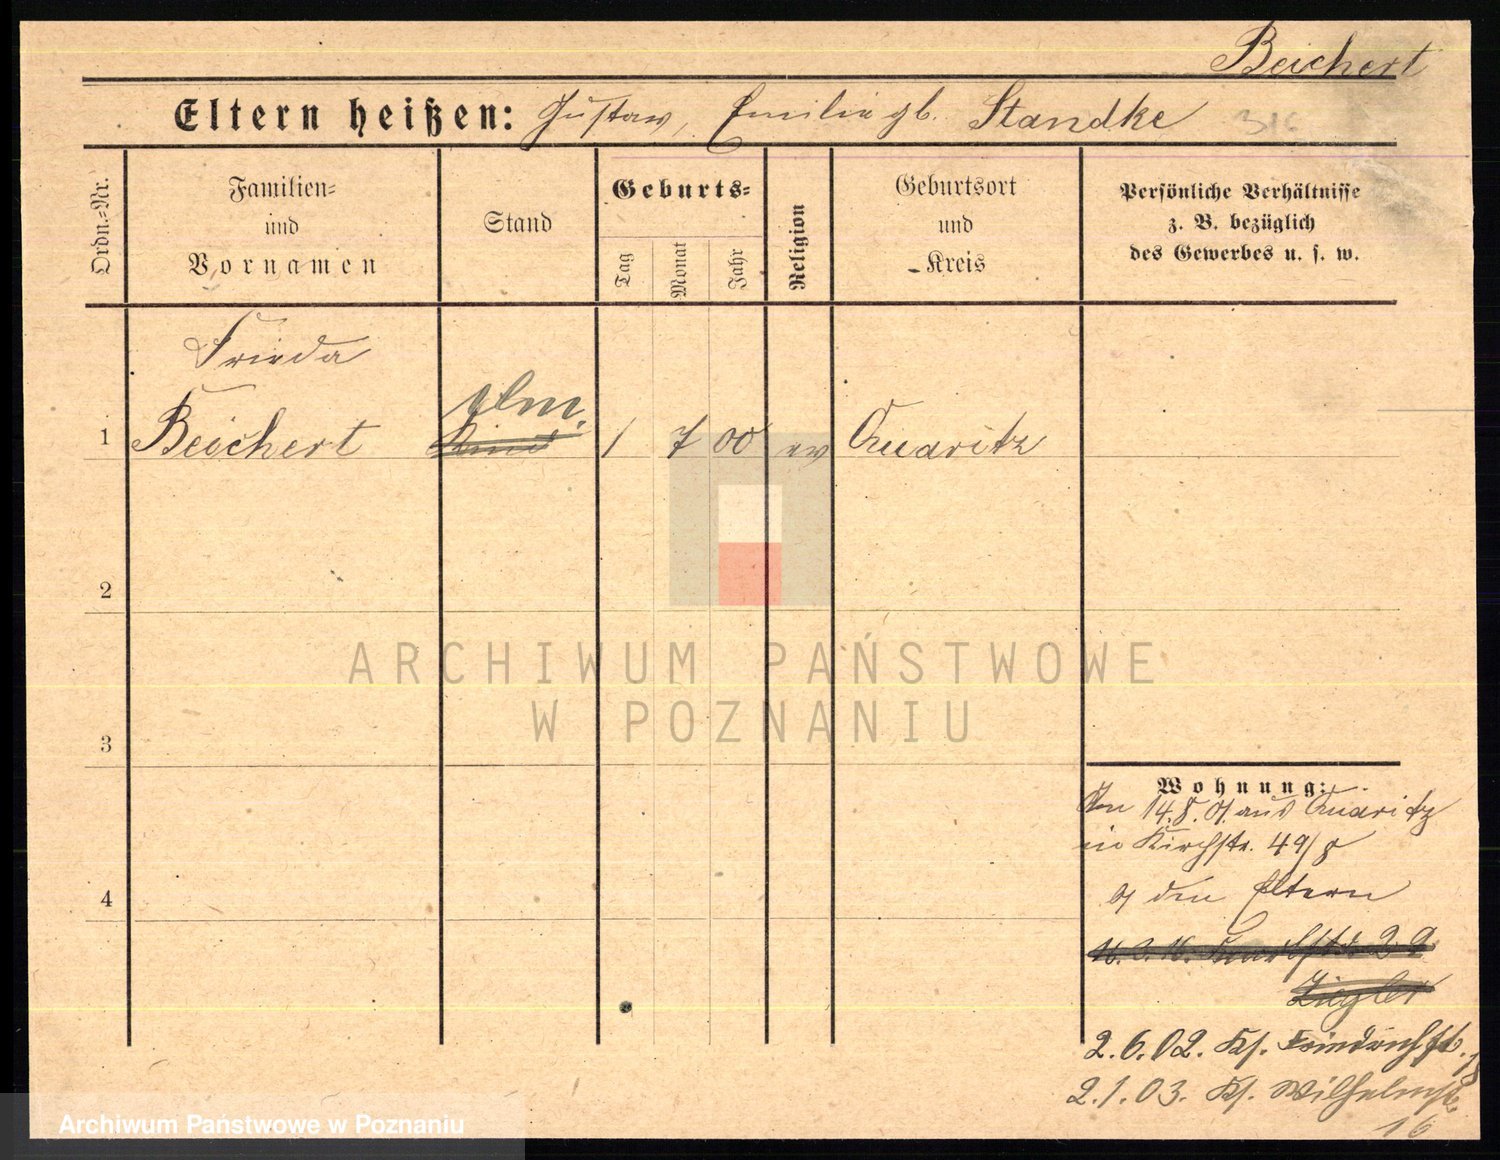 Beichert
Eltern heißen: Gustav, Emilie gb. Standke
316
Ordn.-Nr.
Familien-
und
Vornamen
Stand
Geburts-
Tag
Monat
Jahr
Religion
Geburtsort
und
Kreis
Persönliche Verhältnisse
z. B. bezüglich
des Gewerbes u. s. w.
Frieda
1 Beichert Kind 1 7 00 ev Quaritz
2
3
4
Wohnung:
Am 14.8.01 aus Quaritz
in Kirchstr. 49/
den Eltern
Ziegler
2.6.02. Kl. Friedrichst.
2.1.03. Kl. Wilhelmst.
16
ARCHIWUM PAŃSTWOWE
W POZNANIU
Archiwum Państwowe w Poznaniu